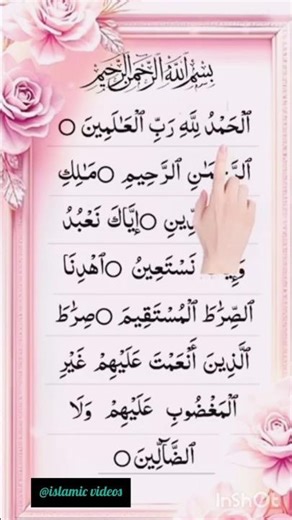 بِسْمِ ٱللَّهِ ٱلرَّحْمَٰنِ ٱلرَّحِيمِ
ٱلْحَمْدُ لِلَّهِ رَبِّ ٱلْعَـٰلَمِينَ ○
ٱلرَّحْمَـٰنِ ٱلرَّحِيمِ ○ مَـٰلِكِ
ٱلدِّينِ ○ إِيَّاكَ نَعْبُدُ
نَسْتَعِينُ ○ ٱهْدِنَا
ٱلصِّرَٰطَ ٱلْمُسْتَقِيمَ ○ صِرَٰطَ
ٱلَّذِينَ أَنْعَمْتَ عَلَيْهِمْ غَيْرِ
ٱلْمَغْضُوبِ عَلَيْهِمْ وَلَا
ٱلضَّآلِّينَ ○
@islamic videos
InShOt